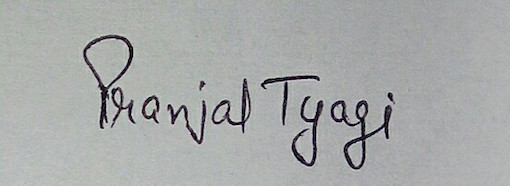 Pranjal Tyagi